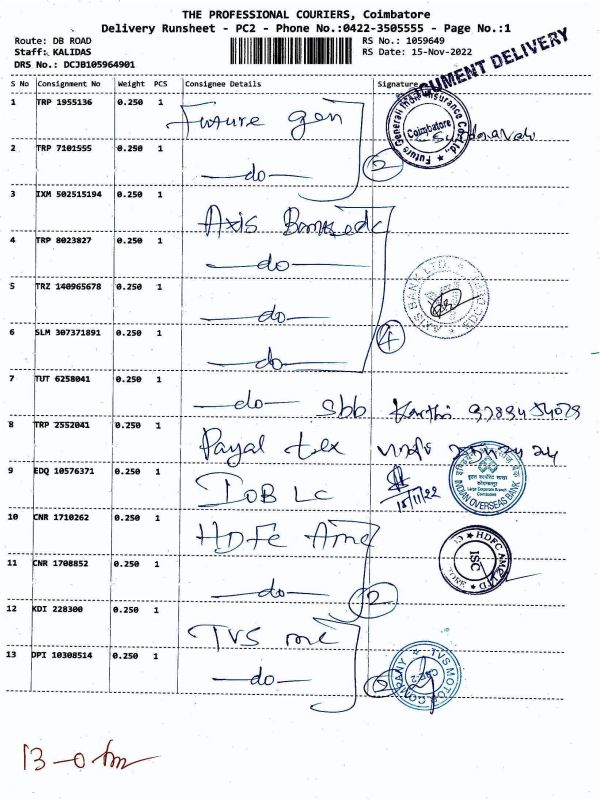 THE PROFESSIONAL COURIERS, Coimbatore
Delivery Runsheet - PC2 - Phone No.:0422-3505555 - Page No.:1
Route: DB ROAD RS No.: 1059649
Staff: KALIDAS RS Date: 15-Nov-2022
DRS No.: DCJB105964901
DOCUMENT DELIVERY
S No Consignment No Weight PCS Consignee Details Signature
1 TRP 1955136 0.250 1 Future gen
Future Generali India Insurance Co. Ltd., Coimbatore
2 TRP 7101555 0.250 1 —do— 2
3 IXM 502515194 0.250 1 Axis Bank
4 TRP 8023827 0.250 1 —do—
5 TRZ 140965678 0.250 1 —do—
AXIS BANK LTD.
6 SLM 307371891 0.250 1 —do— 4
7 TUT 6258041 0.250 1 —do— sbb Karthi
8 TRP 2552041 0.250 1 Payal tex
9 EDQ 10576371 0.250 1 IOB LC 15/11/22
INDIAN OVERSEAS BANK
10 CNR 1710262 0.250 1 HDFC Amc
HDFC AMC LTD ISC
11 CNR 1708852 0.250 1 —do— 2
12 KDI 228300 0.250 1 TVS mc
13 DPI 10308514 0.250 1 —do— 2
TVS MOTOR COMPANY
13 - 0